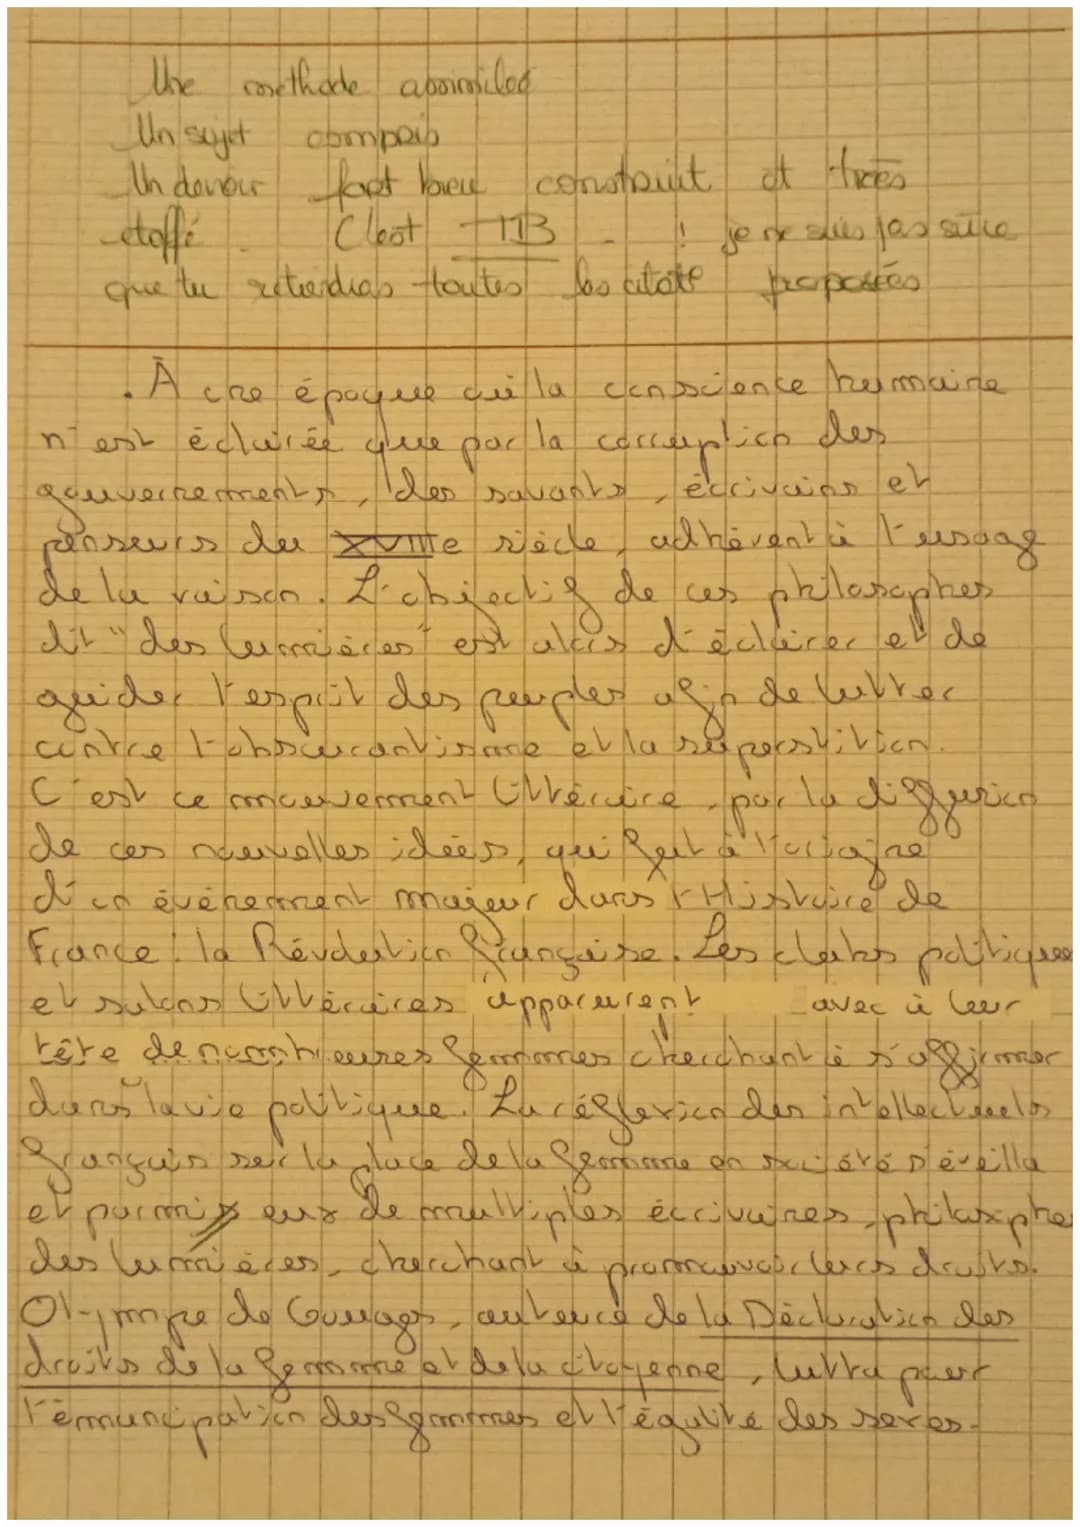 Une méthode assimilée
Un sujet compris
Un devoir fort bien construit et très
étoffé. C'est TB - ! je ne suis pas sûre
que tu retiendras toutes les citato proposées
. À une époque où la conscience humaine
n'est éclairée que par la corruption des
gouvernements, des savants, écrivains et
penseurs du XVIIIe siècle, adhèrent à l'usage
de la raison. L'objectif de ces philosophes
dit "des lumières" est alors d'éclairer et de
guider l'esprit des peuples afin de lutter
contre l'obscurantisme et la superstition.
C'est ce mouvement littéraire, par la diffusion
de ces nouvelles idées, qui fut à l'origine
d'un événement majeur dans l'Histoire de
France : la Révolution française. Les clubs politiques
et salons littéraires apparurent avec à leur
tête de nombreuses femmes cherchant à s'affirmer
dans la vie politique. La réflexion des intellectuels
français sur la place de la femme en société s'éveilla
et parmis eux de multiples écrivaines, philosophe
des lumières, cherchant à promouvoir leurs droits.
Olympe de Gouges, auteure de la Déclaration des
droits de la femme et de la citoyenne, lutta pour
l'émancipation des femmes et l'égalité des sexes.